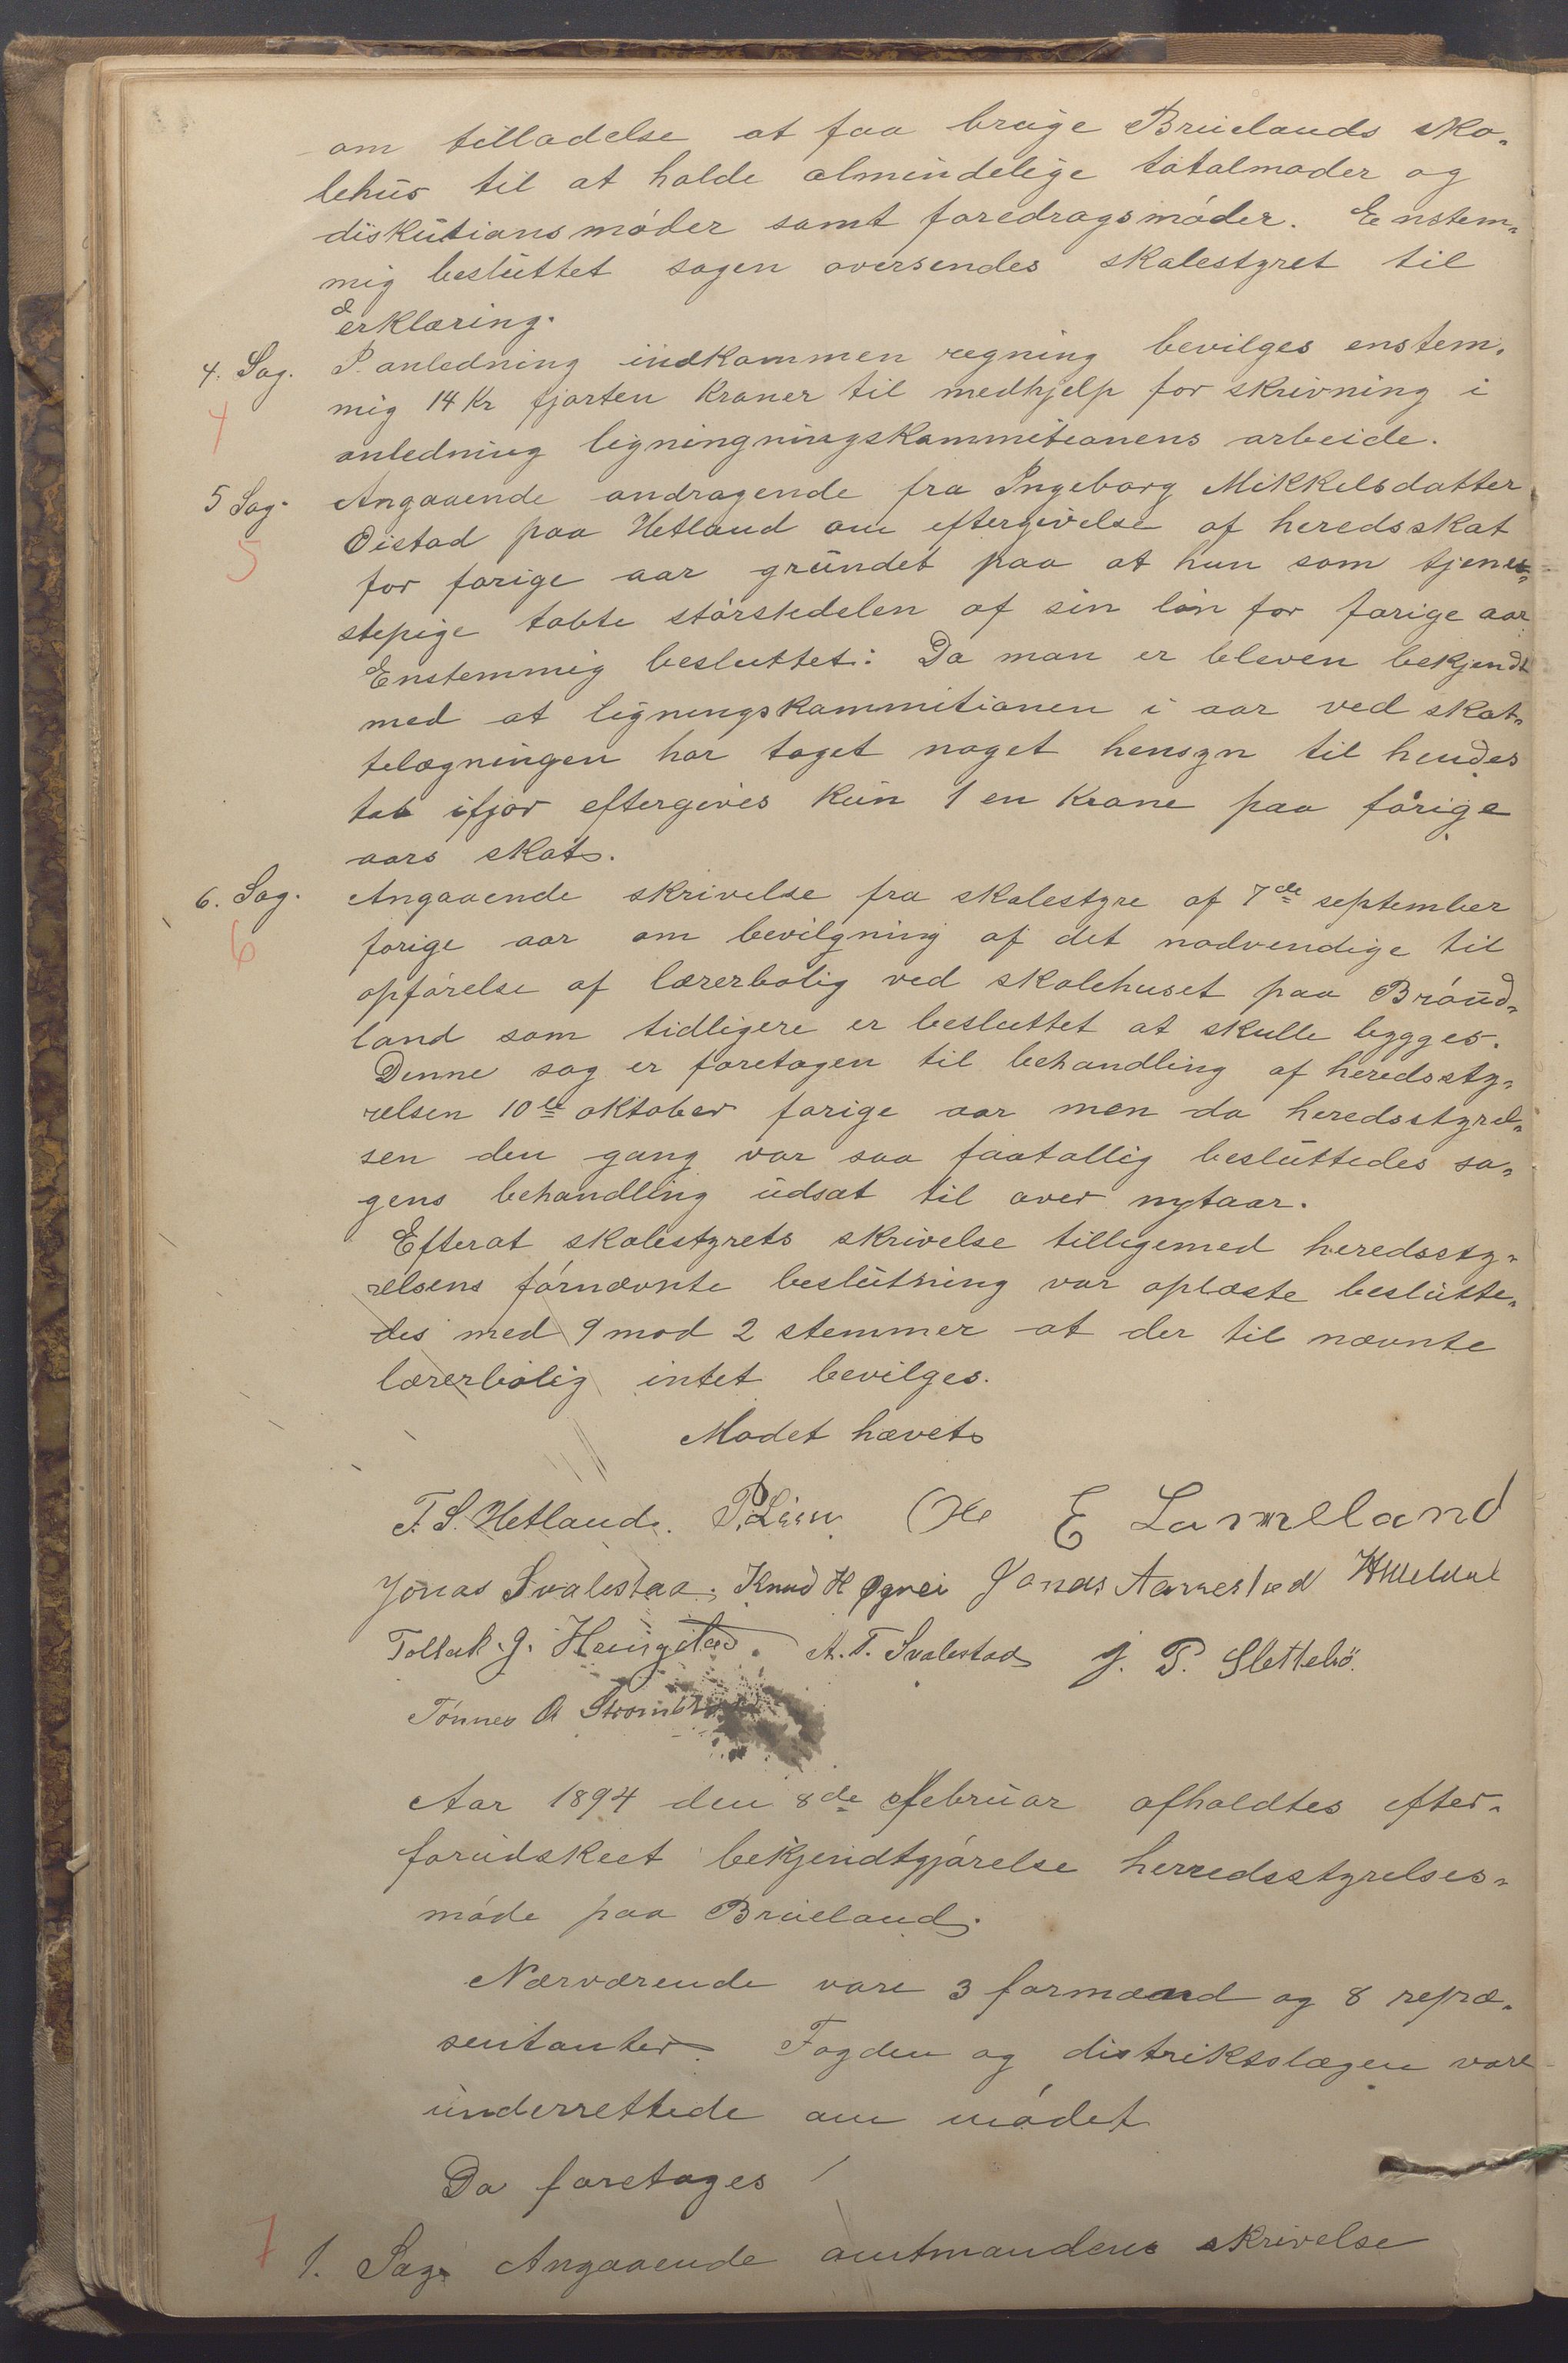 om tilladelse at faa bruge Bruelands sko-
lehus til at holde almindelige totalmøder og
diskutionsmøder samt foredragsmøder. Enstem-
mig besluttet sagen oversendes skolestyret til
erklæring.
4. Sag. I anledning indkommen regning bevilges enstem-
4
mig 14 Kr fjorten kroner til medhjelp for skrivning i
anledning ligningningskommitionens arbeide.
5 Sag. Angaaende andragende fra Ingeborg Mikkelsdatter
5
Øistad paa Hetland om eftergivelse af heredsskat
for forige aar grundet paa at hun som tjene-
stepige tabte størstedelen af sin løn for forige aar
Enstemmig besluttet: Da man er bleven bekjendt
med at ligningskommitionen i aar ved skat-
telægningen har taget noget hensyn til hendes
tab ifjor eftergives kun 1 en krone paa forige
aars skat.
6. Sag. Angaaende skrivelse fra skolestyre af 7de september
6
forige aar om bevilgning af det nødvendige til
opførelse af lærerbolig ved skolehuset paa Brøud-
land som tidligere er besluttet at skulle bygges.
Denne sag er foretagen til behandling af heredssty-
relsen 10de oktober forige aar men da heredsstyrel-
sen den gang var saa faatallig besluttedes sa-
gens behandling udsat til over nytaar.
Efterat skolestyrets skrivelse tilligemed heredssty-
relsens førnævnte beslutning var oplæste beslutte-
des med 9 mod 2 stemmer at der til nævnte
lærerbolig intet bevilges.
Mødet hævet
T. S. Hetland. P. Lien E Lameland
Jonas Svalestad. Knud H Øgrei Jonas Aarrestad
Tollak J. Haugstad. A. T. Svalestad J. P. Slettebø.
Tønnes A
Aar 1894 den 8de februar afholdtes efter-
forudskeet bekjendtgjørelse herredsstyrelses-
møde paa Brueland.
Nærværende vare 3 formænd og 8 repræ-
sentanter. Fogden og distriktslægen vare
underrettede om mødet
Da foretages
7
1. Sag. Angaaende amtmandens skrivelse